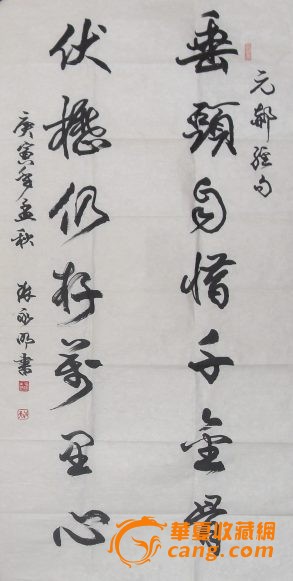 元郝經句
垂頭自惜千金骨
伏櫪仍存萬里心
庚寅年孟秋
書
華夏收藏網
cang.com